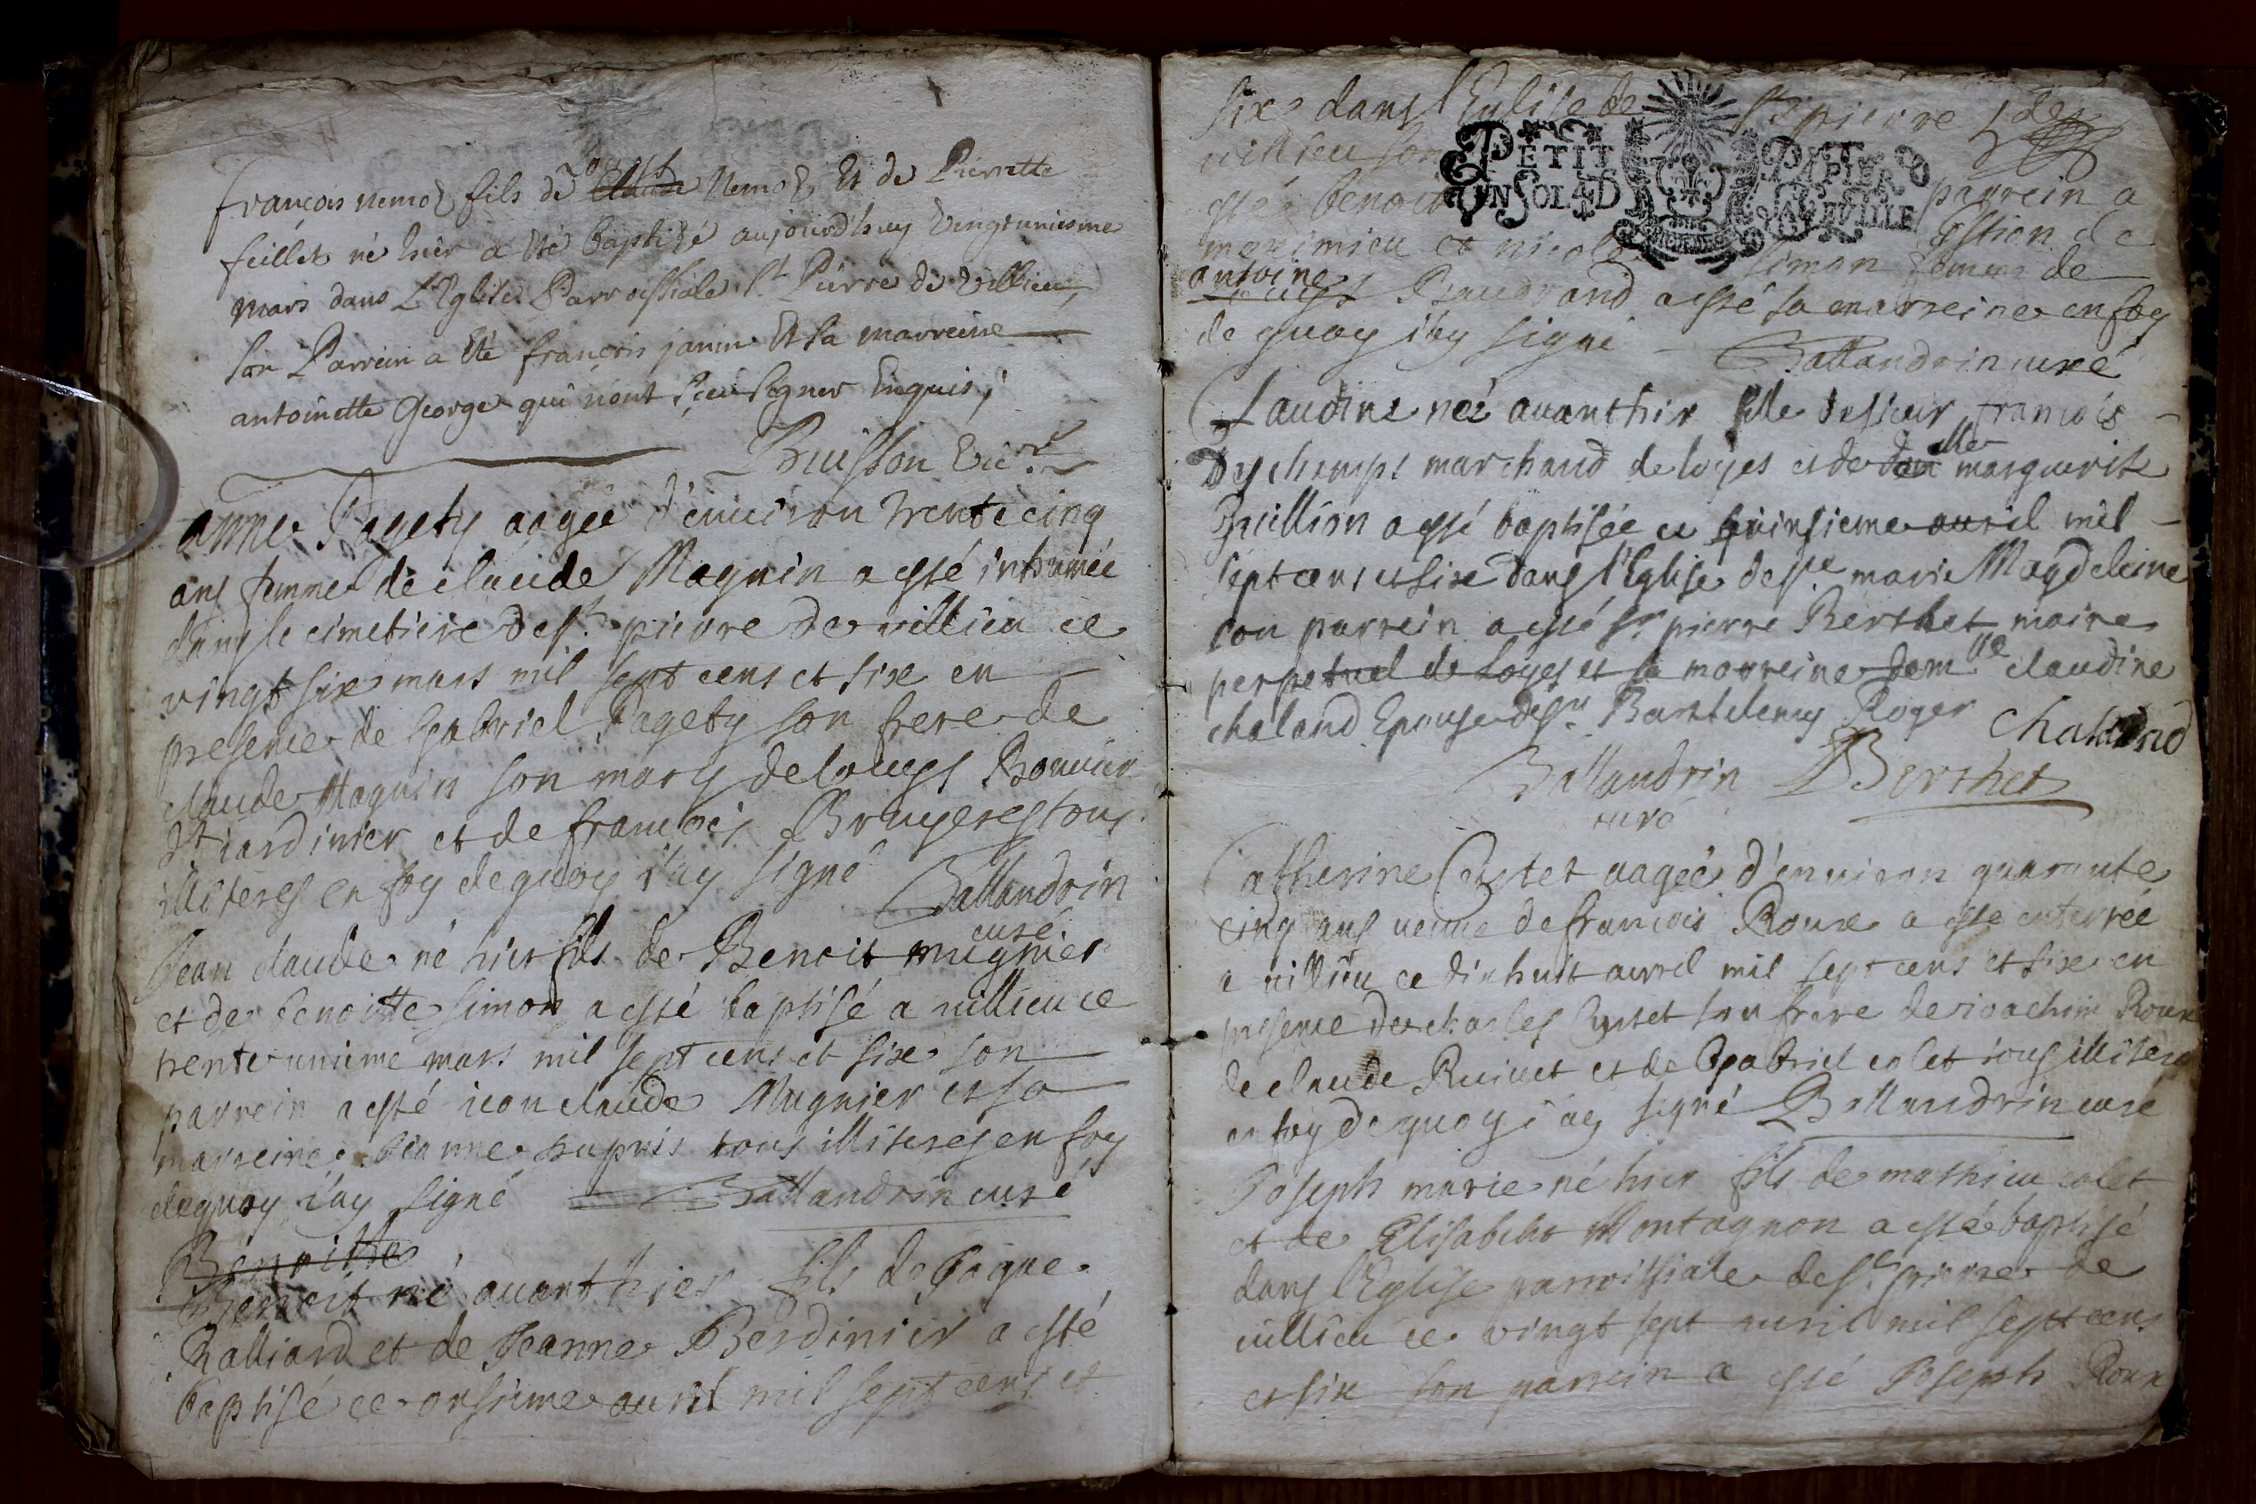 françois nemoz fils de Claude nemoz Et de Pierrette
feillet né hier a Eté baptizé aujourd'huy Vingtuniesme
mars dans L'Eglise Parroissiale St Pierre de Villieu,
son Parrein a Eté françois janin Et sa marreine
antoinette George qui n'ont sceu signer Enquis,
Buisson Vicre
anne Pagety aagée d'enuiron trente cinq
ans femme de claude Maguin a esté inhumée
dans le cimetiere de st pierre de villieu ce
vingt six mars mil sept cens et six en
presence de Gabriel Pagety son frere de
claude Maguin son mary de Bouuier
dt iardinier et de francois Bruyeres tous
illiteres en foy dequoy i'ay signé Ballandrin
curé
Jean claude né hier fils de Benoit mugnier
et de benoitte simon a esté baptisé a villieu ce
trente unieme mars mil sept cens et six son
parrein a esté iean claude Mugnier et sa
marreine Jeanne tous illiteres en foy
dequoy i'ay signé Ballandrin curé
Benoitte
Benoit né auanthier fils de
Ralliard et de Jeanne Berdinier a esté
baptisé ce onsieme auril mil sept cens et
six dans l'Eglise de st pierre de
villieu son parrein a
esté benoit
PETIT PAPIER
UN SOL 4 D LA FEUILLE
meximieu et simon femme de
antoine
Baudrand a esté sa marreine en foy
de quoy i'ay signé Ballandrin curé
Claudine née auanthier fille de sieur francois
Deschamps marchand de loyes et de delle marguerite
Quillion a esté baptisée ce quinsieme auril mil
sept cens et six dans l'Eglise de ste marie Magdeleine
son parrein a esté sr pierre Berthet maire
perpetuel de Loyes et sa marreine damlle claudine
chaland Epouse de sr Barthelemy Roger chaland
Ballandrin Berthet
curé
Catherine aagée d'enuiron quarante
cinq ans veuue de francois Roux a esté enterrée
a villieu ce dixhuit auril mil sept cens et six en
presence de charles son frere de ioachim Roux
de claude Ruivet et de Gabriel colet tous illiteres
en foy de quoy i'ay signé Ballandrin curé
Joseph marie né hier fils de mathieu colet
et de Elisabeht Montagnon a esté baptisé
dans l'Eglise parroissiale de st pierre de
villieu ce vingt sept auril mil sept cens
et six son parrein a esté Joseph Roux